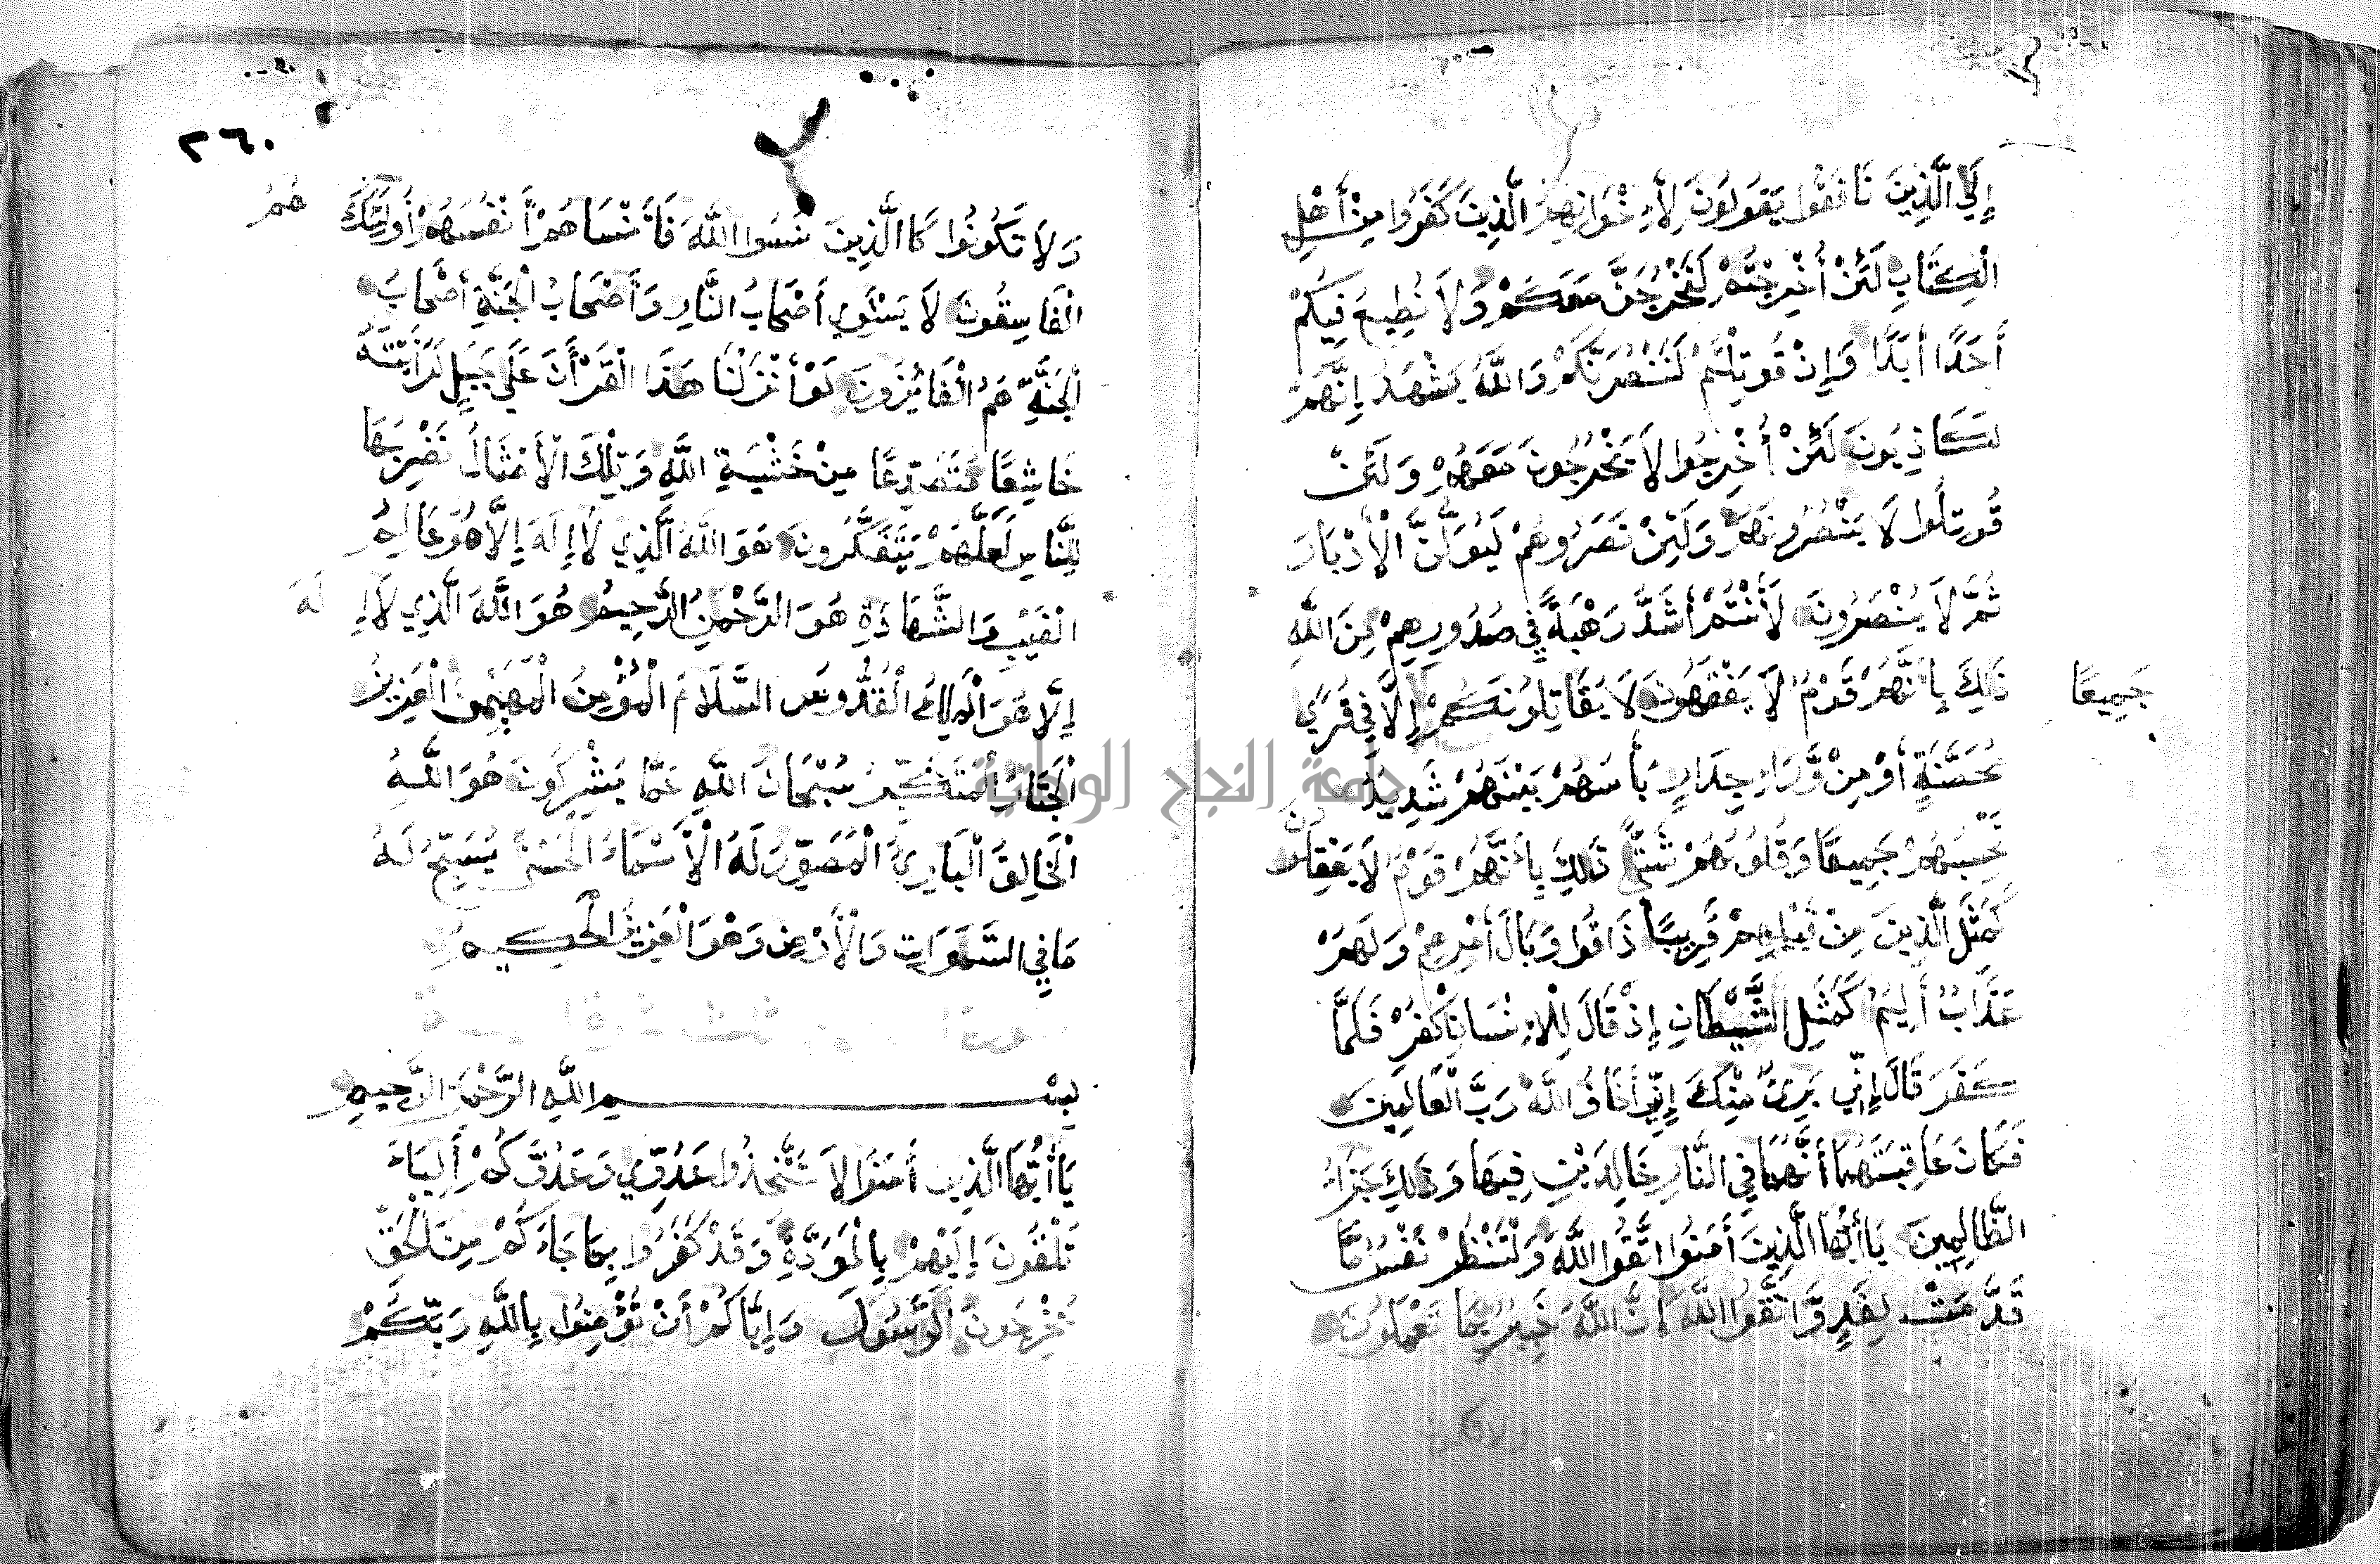 إِلَى الَّذِينَ نَافَقُوا يَقُولُونَ لِإِخْوَانِهِمُ الَّذِينَ كَفَرُوا مِنْ أَهْلِ
الْكِتَابِ لَئِنْ أُخْرِجْتُمْ لَنَخْرُجَنَّ مَعَكُمْ وَلَا نُطِيعُ فِيكُمْ
أَحَدًا أَبَدًا وَإِنْ قُوتِلْتُمْ لَنَنْصُرَنَّكُمْ وَاللَّهُ يَشْهَدُ إِنَّهُمْ
لَكَاذِبُونَ لَئِنْ أُخْرِجُوا لَا يَخْرُجُونَ مَعَهُمْ وَلَئِنْ
قُوتِلُوا لَا يَنْصُرُونَهُمْ وَلَئِنْ نَصَرُوهُمْ لَيُوَلُّنَّ الْأَدْبَارَ
ثُمَّ لَا يُنْصَرُونَ لَأَنْتُمْ أَشَدُّ رَهْبَةً فِي صُدُورِهِمْ مِنَ اللَّهِ
ذَلِكَ بِأَنَّهُمْ قَوْمٌ لَا يَفْقَهُونَ لَا يُقَاتِلُونَكُمْ إِلَّا فِي قُرًى
جَمِيعًا
مُحَصَّنَةٍ أَوْ مِنْ وَرَاءِ جِدَارٍ بَأْسُهُمْ بَيْنَهُمْ شَدِيدٌ
تَحْسَبُهُمْ جَمِيعًا وَقُلُوبُهُمْ شَتَّى ذَلِكَ بِأَنَّهُمْ قَوْمٌ لَا يَعْقِلُونَ
كَمَثَلِ الَّذِينَ مِنْ قَبْلِهِمْ قَرِيبًا ذَاقُوا وَبَالَ أَمْرِهِمْ وَلَهُمْ
عَذَابٌ أَلِيمٌ كَمَثَلِ الشَّيْطَانِ إِذْ قَالَ لِلْإِنْسَانِ اكْفُرْ فَلَمَّا
كَفَرَ قَالَ إِنِّي بَرِيءٌ مِنْكَ إِنِّي أَخَافُ اللَّهَ رَبَّ الْعَالَمِينَ
فَكَانَ عَاقِبَتَهُمَا أَنَّهُمَا فِي النَّارِ خَالِدَيْنِ فِيهَا وَذَلِكَ جَزَاءُ
الظَّالِمِينَ يَا أَيُّهَا الَّذِينَ أَمَنُوا اتَّقُوا اللَّهَ وَلْتَنْظُرْ نَفْسٌ مَّا
قَدَّمَتْ لِغَدٍ وَّاتَّقُوا اللَّهَ إِنَّ اللَّهَ خَبِيرٌ بِمَا تَعْمَلُونَ
٢٦٠
وَلَا تَكُونُوا كَالَّذِينَ نَسُوا اللَّهَ فَأَنْسَاهُمْ أَنْفُسَهُمْ أُولَئِكَ هُمُ
الْفَاسِقُونَ لَا يَسْتَوِي أَصْحَابُ النَّارِ وَأَصْحَابُ الْجَنَّةِ أَصْحَابُ
الْجَنَّةِ هُمُ الْفَائِزُونَ لَوْ أَنْزَلْنَا هَذَا الْقُرْأَنَ عَلَى جَبَلٍ لَرَأَيْتَهُ
خَاشِعًا مُتَصَدِّعًا مِنْ خَشْيَةِ اللَّهِ وَتِلْكَ الْأَمْثَالُ نَضْرِبُهَا
لِلنَّاسِ لَعَلَّهُمْ يَتَفَكَّرُونَ هُوَ اللَّهُ الَّذِي لَا إِلَهَ إِلَّا هُوَ عَالِمُ
الْغَيْبِ وَالشَّهَادَةِ هُوَ الرَّحْمَنُ الرَّحِيمُ هُوَ اللَّهُ الَّذِي لَا إِلَهَ
إِلَّا هُوَ الْمَلِكُ الْقُدُّوسُ السَّلَامُ الْمُؤْمِنُ الْمُهَيْمِنُ الْعَزِيزُ
الْجَبَّارُ الْمُتَكَبِّرُ سُبْحَانَ اللَّهِ عَمَّا يُشْرِكُونَ هُوَ اللَّهُ
الْخَالِقُ الْبَارِئُ الْمُصَوِّرُ لَهُ الْأَسْمَاءُ الْحُسْنَى يُسَبِّحُ لَهُ
مَا فِي السَّمَوَاتِ وَالْأَرْضِ وَهُوَ الْعَزِيزُ الْحَكِيمُ
بِسْمِ اللَّهِ الرَّحْمَنِ الرَّحِيمِ
يَا أَيُّهَا الَّذِينَ أَمَنُوا لَا تَتَّخِذُوا عَدُوِّي وَعَدُوَّكُمْ أَوْلِيَاءَ
تُلْقُونَ إِلَيْهِمْ بِالْمَوَدَّةِ وَقَدْ كَفَرُوا بِمَا جَاءَكُمْ مِنَ الْحَقِّ
يُخْرِجُونَ الرَّسُولَ وَإِيَّاكُمْ أَنْ تُؤْمِنُوا بِاللَّهِ رَبِّكُمْ
جامعة النجاح الوطنية